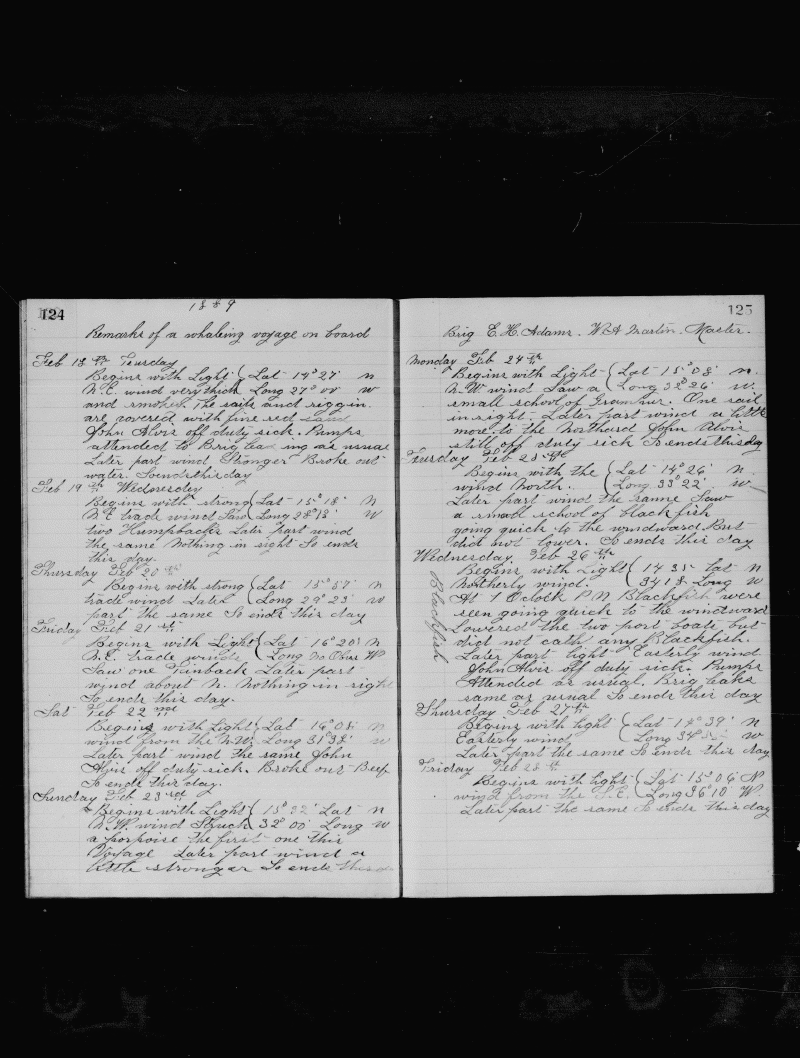 124
1889
Remarks of a whaleing voyage on board
Feb 18 th Teusday
Begins with Light { Lat 14° 27' N
N.E. wind very thick { Long 27° 00' W
and smokey. The sails and riggin
are covered with fine red
John Alvis off duty sick. Pumps
attended to Brig leaking as usual
Later part wind Stronger Broke out
water. So ends this day
Feb 19 th Wednesday
Begins with strong { Lat 15° 18' N
N.E. trade wind Saw { Long 28° 13' W
two Humpbacks Later part wind
the same Nothing in sight So ends
this day.
Thursday Feb 20 th
Begins with strong { Lat 15° 57' N
trade wind Later { Long 29° 23' W
part the same So ends this day
Friday Feb 21 st
Begins with Light { Lat 16° 20' N
N.E. trade winds { Long No Obs W
Saw one Finback Later part
wind about N. Nothing in sight
So ends this day.
Sat Feb 22 nd
Begins with Light { Lat 16° 05' N
wind from the N.W. { Long 31° 32' W
Later part wind the same John
Alvis off duty sick. Broke out Beef
So ends this day.
Sunday Feb 23 rd
Begins with Light { 15° 32' Lat N
N.W. wind Struck { 32° 00' Long W
a porpoise the first one this
Voyage Later part wind a
little stronger So ends this d
125
Brig E. H. Adams. W A Martin. Master.
Monday Feb 24 th
Begins with Light { Lat 15° 08' N.
N.W. wind Saw a { Long 32° 26' W.
small school of Grampus. One sail
in sight. Later part wind a little
more to the Northard John Alvis
still off duty sick So ends this day
Teusday Feb 25 th
Begins with the { Lat 14° 26' N
wind North. { Long 33° 22' W
Later part wind the same Saw
a small school of blackfish
going quick to the windward But
did not lower. So ends this day
Wednesday Feb 26 th
Begins with Light { 14 35 Lat N
Northerly wind. { 34 18 Long W
Blackfish
At 1 Oclock P.M Blackfish were
seen going quick to the windward
Lowered the two port boats but
did not cath any Blackfish.
Later part light Easterly wind
John Alvis off duty sick. Pumps
Attended as usual. Brig leaks
same as usual So ends this day
Thursday Feb 27 th
Begins with light { Lat 15° 39' N
Easterly wind { Long 34° W
Later part the same So ends this day
Friday Feb 28 th
Begins with light { Lat 15° 04 N
wind from the S.E. { Long 36° 10 W.
Later part the same So ends this day